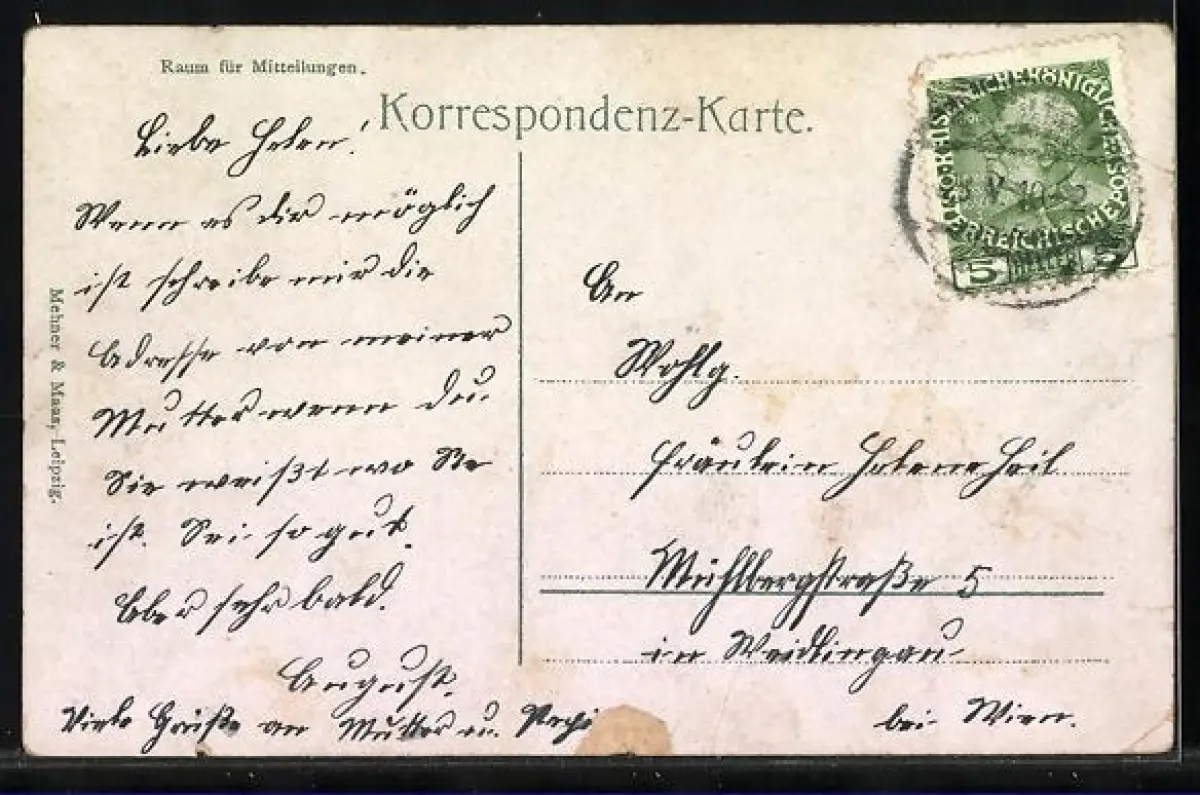 Raum für Mitteilungen.
Korrespondenz-Karte.
Liebe Helen!
Wenn es dir möglich
ist schreibe mir die
Adresse von meiner
Mutter wenn du.
Sie weißt wo Sie
ist. Sei so gut.
Aber sehr bald.
August.
Viele Grüße an Mutter u.
Mehner & Maas, Leipzig.
KAISERLICHE KÖNIGLICHE ÖSTERREICHISCHE POST
5 HELLER 5
An
Wohlg.
Fräulein Helene Heil
Mühlbergstraße 5
in Weidlingau
bei Wien.